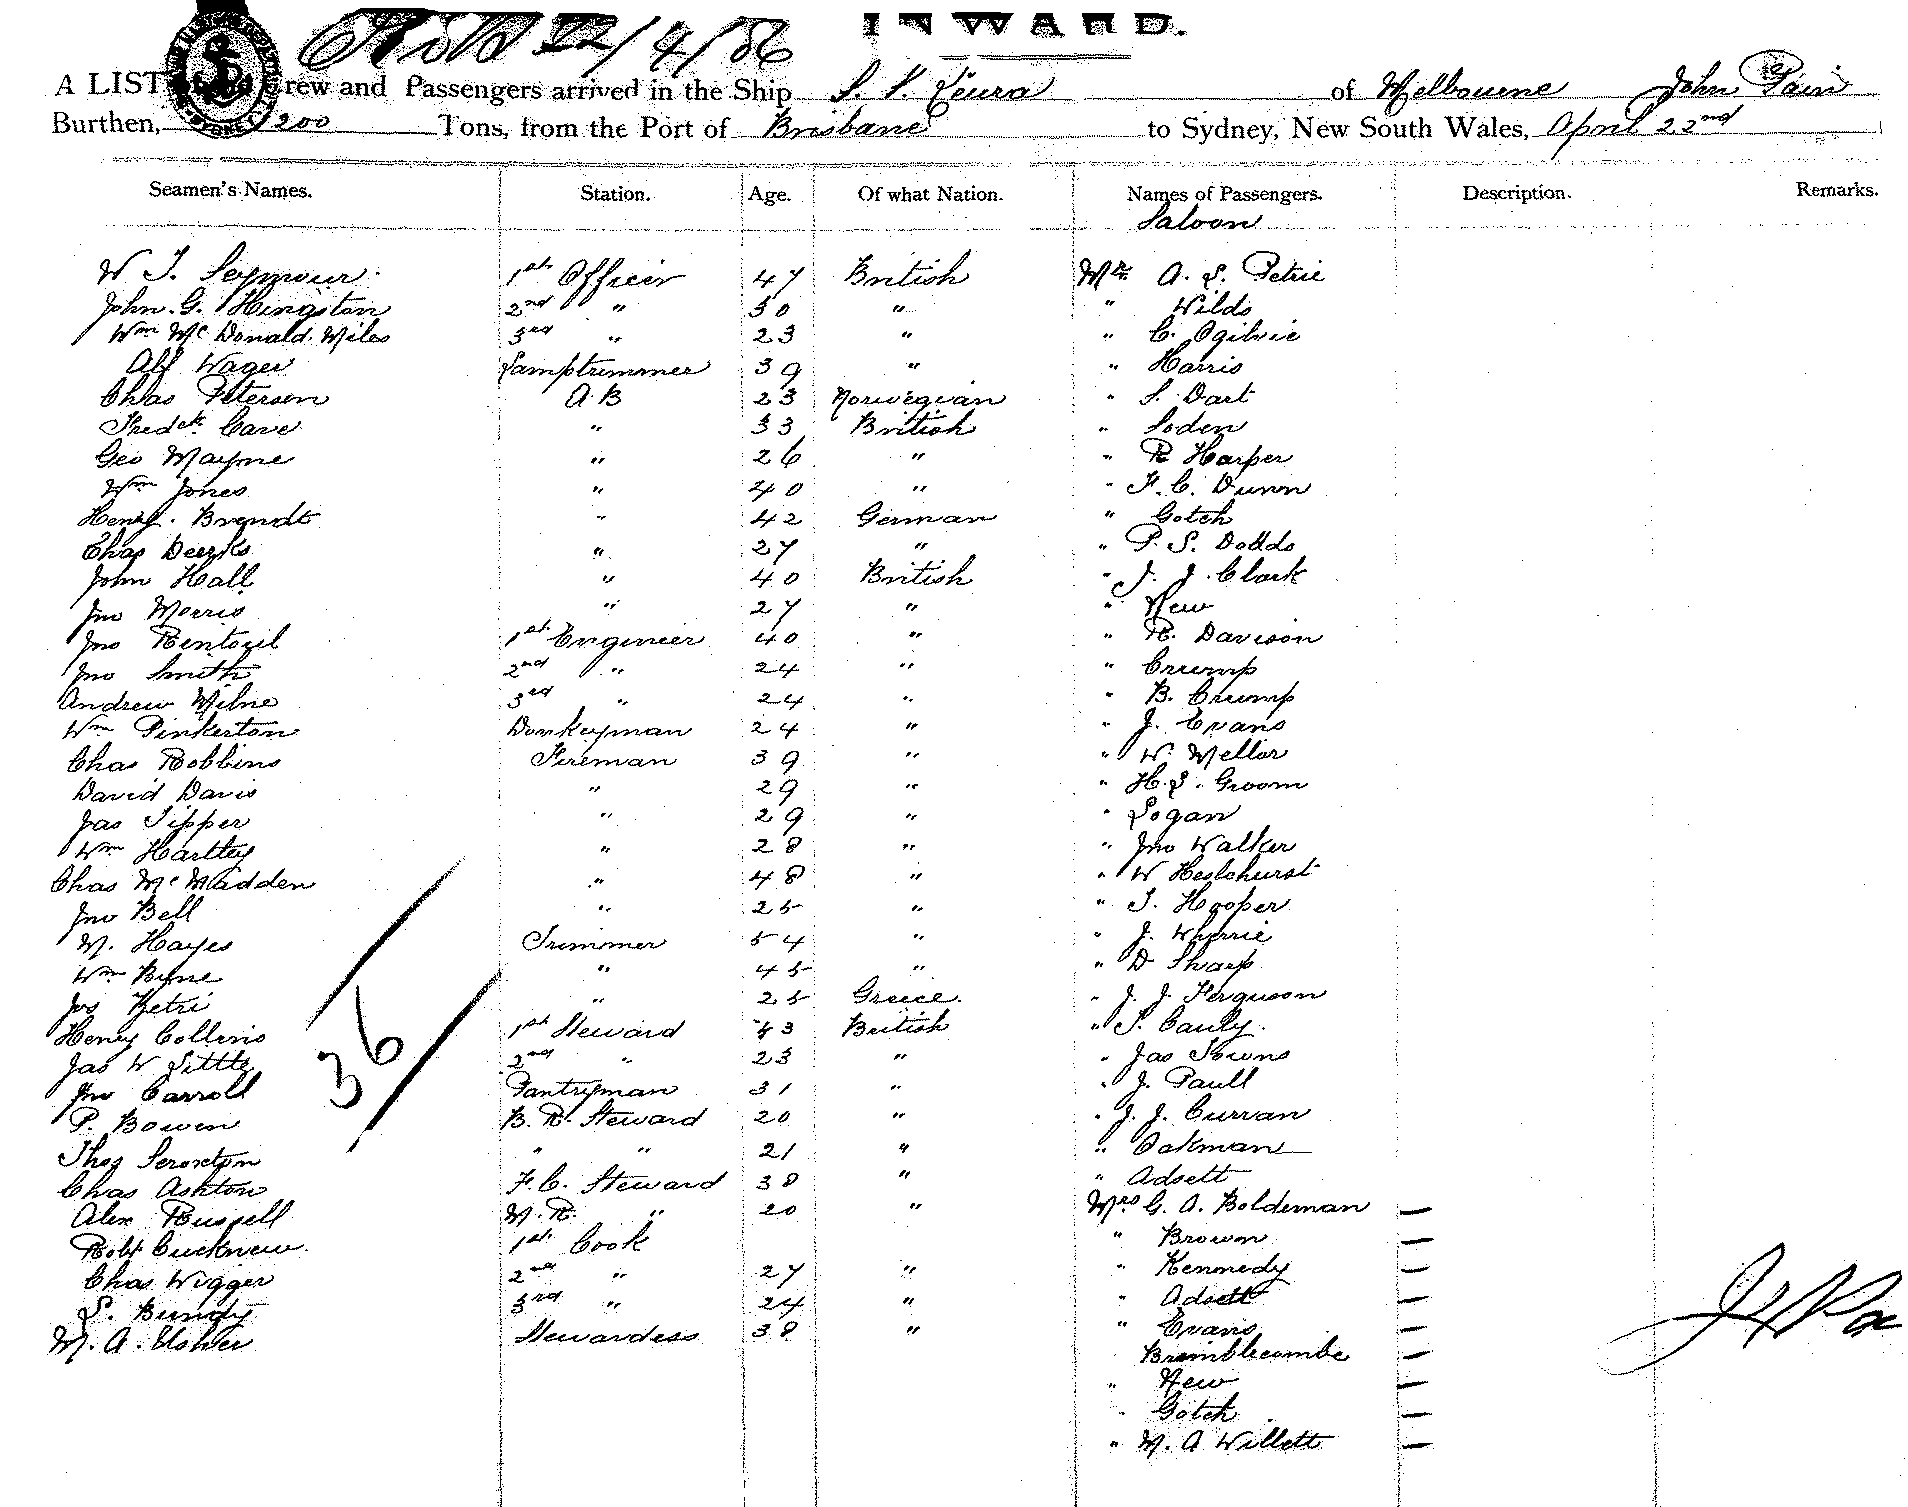 22/4/86 INWARD.
A LIST of the Crew and Passengers arrived in the Ship S. S. Keura of Melbourne John Pain
Burthen, 1200 Tons, from the Port of Brisbane to Sydney, New South Wales, April 22nd
Seamen's Names. Station. Age. Of what Nation. Names of Passengers. Description. Remarks.
Saloon
W T. Seymour 1st Officer 47 British Mr A. L. Petrie
John. G. Hingston 2nd " 30 " " Wilds
Wm Mc Donald Miles 3rd " 23 " " C. Ogilvie
Alf Wager Lamptrimmer 39 " " Harris
Chas Peterson A.B 23 Norwegian " S. Dart
Fredck Cave " 33 British " Soden
Geo Mayne " 26 " " R Harper
Wm Jones " 40 " " F. C. Dunn
Heny. Brendt " 42 German " Gotch
Chas Deerks " 27 " " P. S. Dodds
John Hall " 40 British " J. J. Clark
Jno Morris " 27 " " New
Jno Rentoul 1st Engineer 40 " " R. Davison
Jno Smith 2nd " 24 " " Crump
Andrew Milne 3rd " 24 " " B. Crump
Wm Pinkerton Donkeyman 24 " " J. Evans
Chas Robbins Fireman 39 " " W. Mellor
David Davis " 29 " " H. L. Groom
Jas Tipper " 29 " " Logan
Wm Hartley " 28 " " Jno Walker
Chas Mc Madden " 48 " " W Heslehurst
Jno Bell " 25 " " T. Hooper
M. Hayes Trimmer 54 " " J. Wherrie
Wm Byne " 45 " " D Sharp
Jos Petri " 25 Greece. " J. J. Ferguson
Henry Collins 1st Steward 43 British " S. Cauly.
Jas W Little 2nd " 23 " " Jas Towns
Jno Carroll Pantryman 31 " " J. Paull
P. Bowen B. R. Steward 20 " " J. J. Curran
Thos " " 21 " " Oakman
Chas Ashton F. C. Steward 38 " " Adsett
Alex Russell M. R. " 20 " Mrs G. A. Boldeman
Robt Cucknew 1st Cook " Brown
Chas Wigger 2nd " 27 " " Kennedy
L. Bundy 3rd " 24 " " Adsett
M. A. Usher Stewardess 38 " " Evans
Bremblecombe
" New
" Gotch
" M. A Willett
36